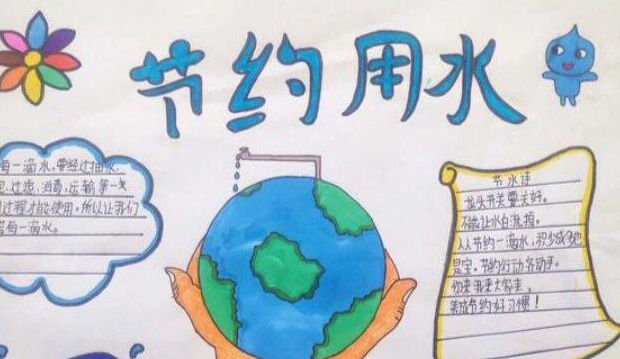 节约用水
每一滴水,要经过抽水、
过滤、消毒、运输等一
过程才能使用。所以让我们
每一滴水。
节水谣
龙头开关要关好。
不能让水白流掉。
人人节约一滴水,积少成多
是宝。节约行动齐动手。
你来我来大家来。
养成节约好习惯!